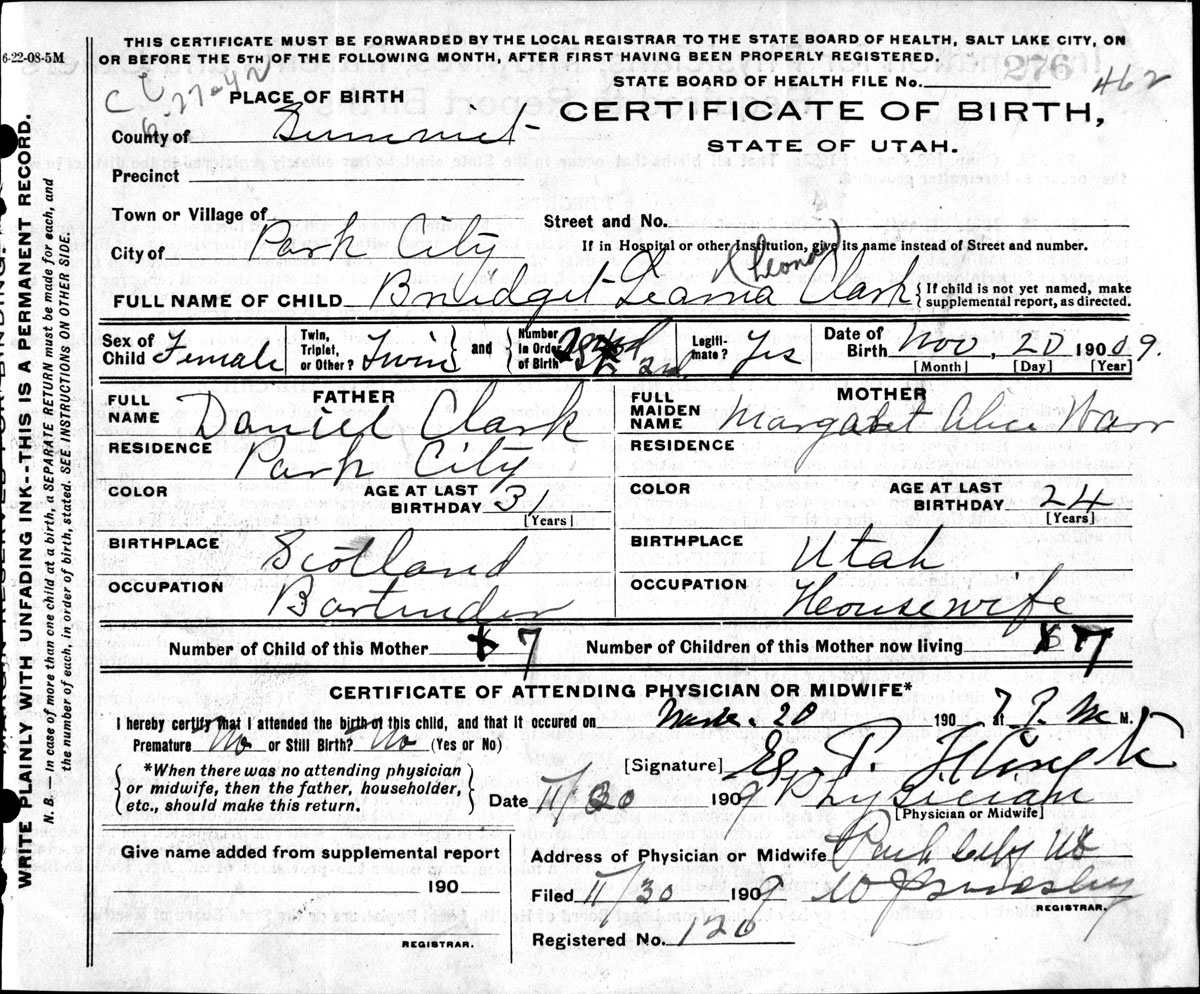 6-22-08-5M
THIS CERTIFICATE MUST BE FORWARDED BY THE LOCAL REGISTRAR TO THE STATE BOARD OF HEALTH, SALT LAKE CITY, ON
OR BEFORE THE 5TH OF THE FOLLOWING MONTH, AFTER FIRST HAVING BEEN PROPERLY REGISTERED.
276
STATE BOARD OF HEALTH FILE No. 462
6-27-42
PLACE OF BIRTH
CERTIFICATE OF BIRTH,
County of Summit
STATE OF UTAH.
Precinct
Town or Village of
Street and No.
City of Park City
If in Hospital or other Institution, give its name instead of Street and number.
(Leona)
FULL NAME OF CHILD Bridget Leanna Clark {If child is not yet named, make supplemental report, as directed.
Sex of Child Female Twin, Triplet, or Other? Twin and Number in Order of Birth 2nd Legitimate? Yes Date of Birth Nov, 20 1909.
[Month] [Day] [Year]
FATHER
MOTHER
FULL NAME Daniel Clark
FULL MAIDEN NAME Margaret Alice Warr
RESIDENCE Park City
RESIDENCE
COLOR AGE AT LAST BIRTHDAY 31 [Years]
COLOR AGE AT LAST BIRTHDAY 24 [Years]
BIRTHPLACE Scotland
BIRTHPLACE Utah
OCCUPATION Bartender
OCCUPATION Housewife
Number of Child of this Mother 7 Number of Children of this Mother now living 7
CERTIFICATE OF ATTENDING PHYSICIAN OR MIDWIFE*
I hereby certify that I attended the birth of this child, and that it occured on 20 190 at 7 P. M M.
Premature No or Still Birth? No (Yes or No)
{*When there was no attending physician or midwife, then the father, householder, etc., should make this return.}
[Signature] P.
Date 11/30 1909 Physician
[Physician or Midwife]
Give name added from supplemental report
190
REGISTRAR.
Address of Physician or Midwife Park City Ut
Filed 11/30 1909
REGISTRAR.
Registered No. 120
WRITE PLAINLY WITH UNFADING INK--THIS IS A PERMANENT RECORD.
N. B. — In case of more than one child at a birth, a SEPARATE RETURN must be made for each, and
the number of each, in order of birth, stated. SEE INSTRUCTIONS ON OTHER SIDE.